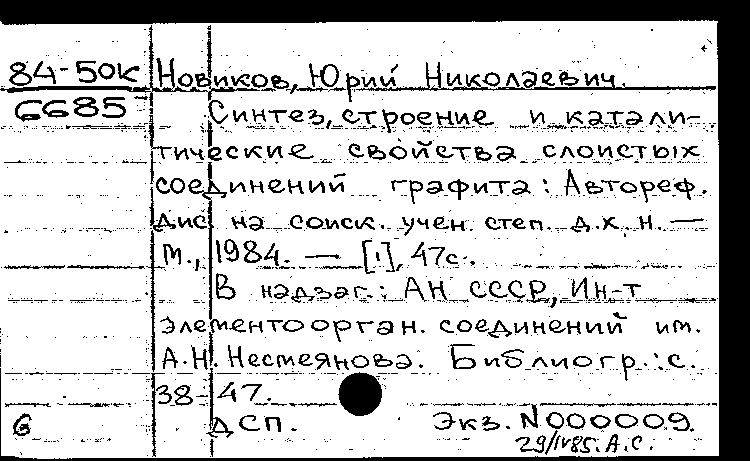 84-50К Новиков, Юрий Николаевич.
6685 Синтез, строение и катали-
тические свойства слоистых
соединений графита: Автореф.
дис. на соиск. учен. степ. д.х.н. —
М., 1984. — [1], 47с.
В надзаг.: АН СССР, Ин-т
элементоорган. соединений им.
А.Н. Несмеянова. Библиогр.: с.
38-47.
б ДСП. Экз. N000009.
29/IV85. А.С.